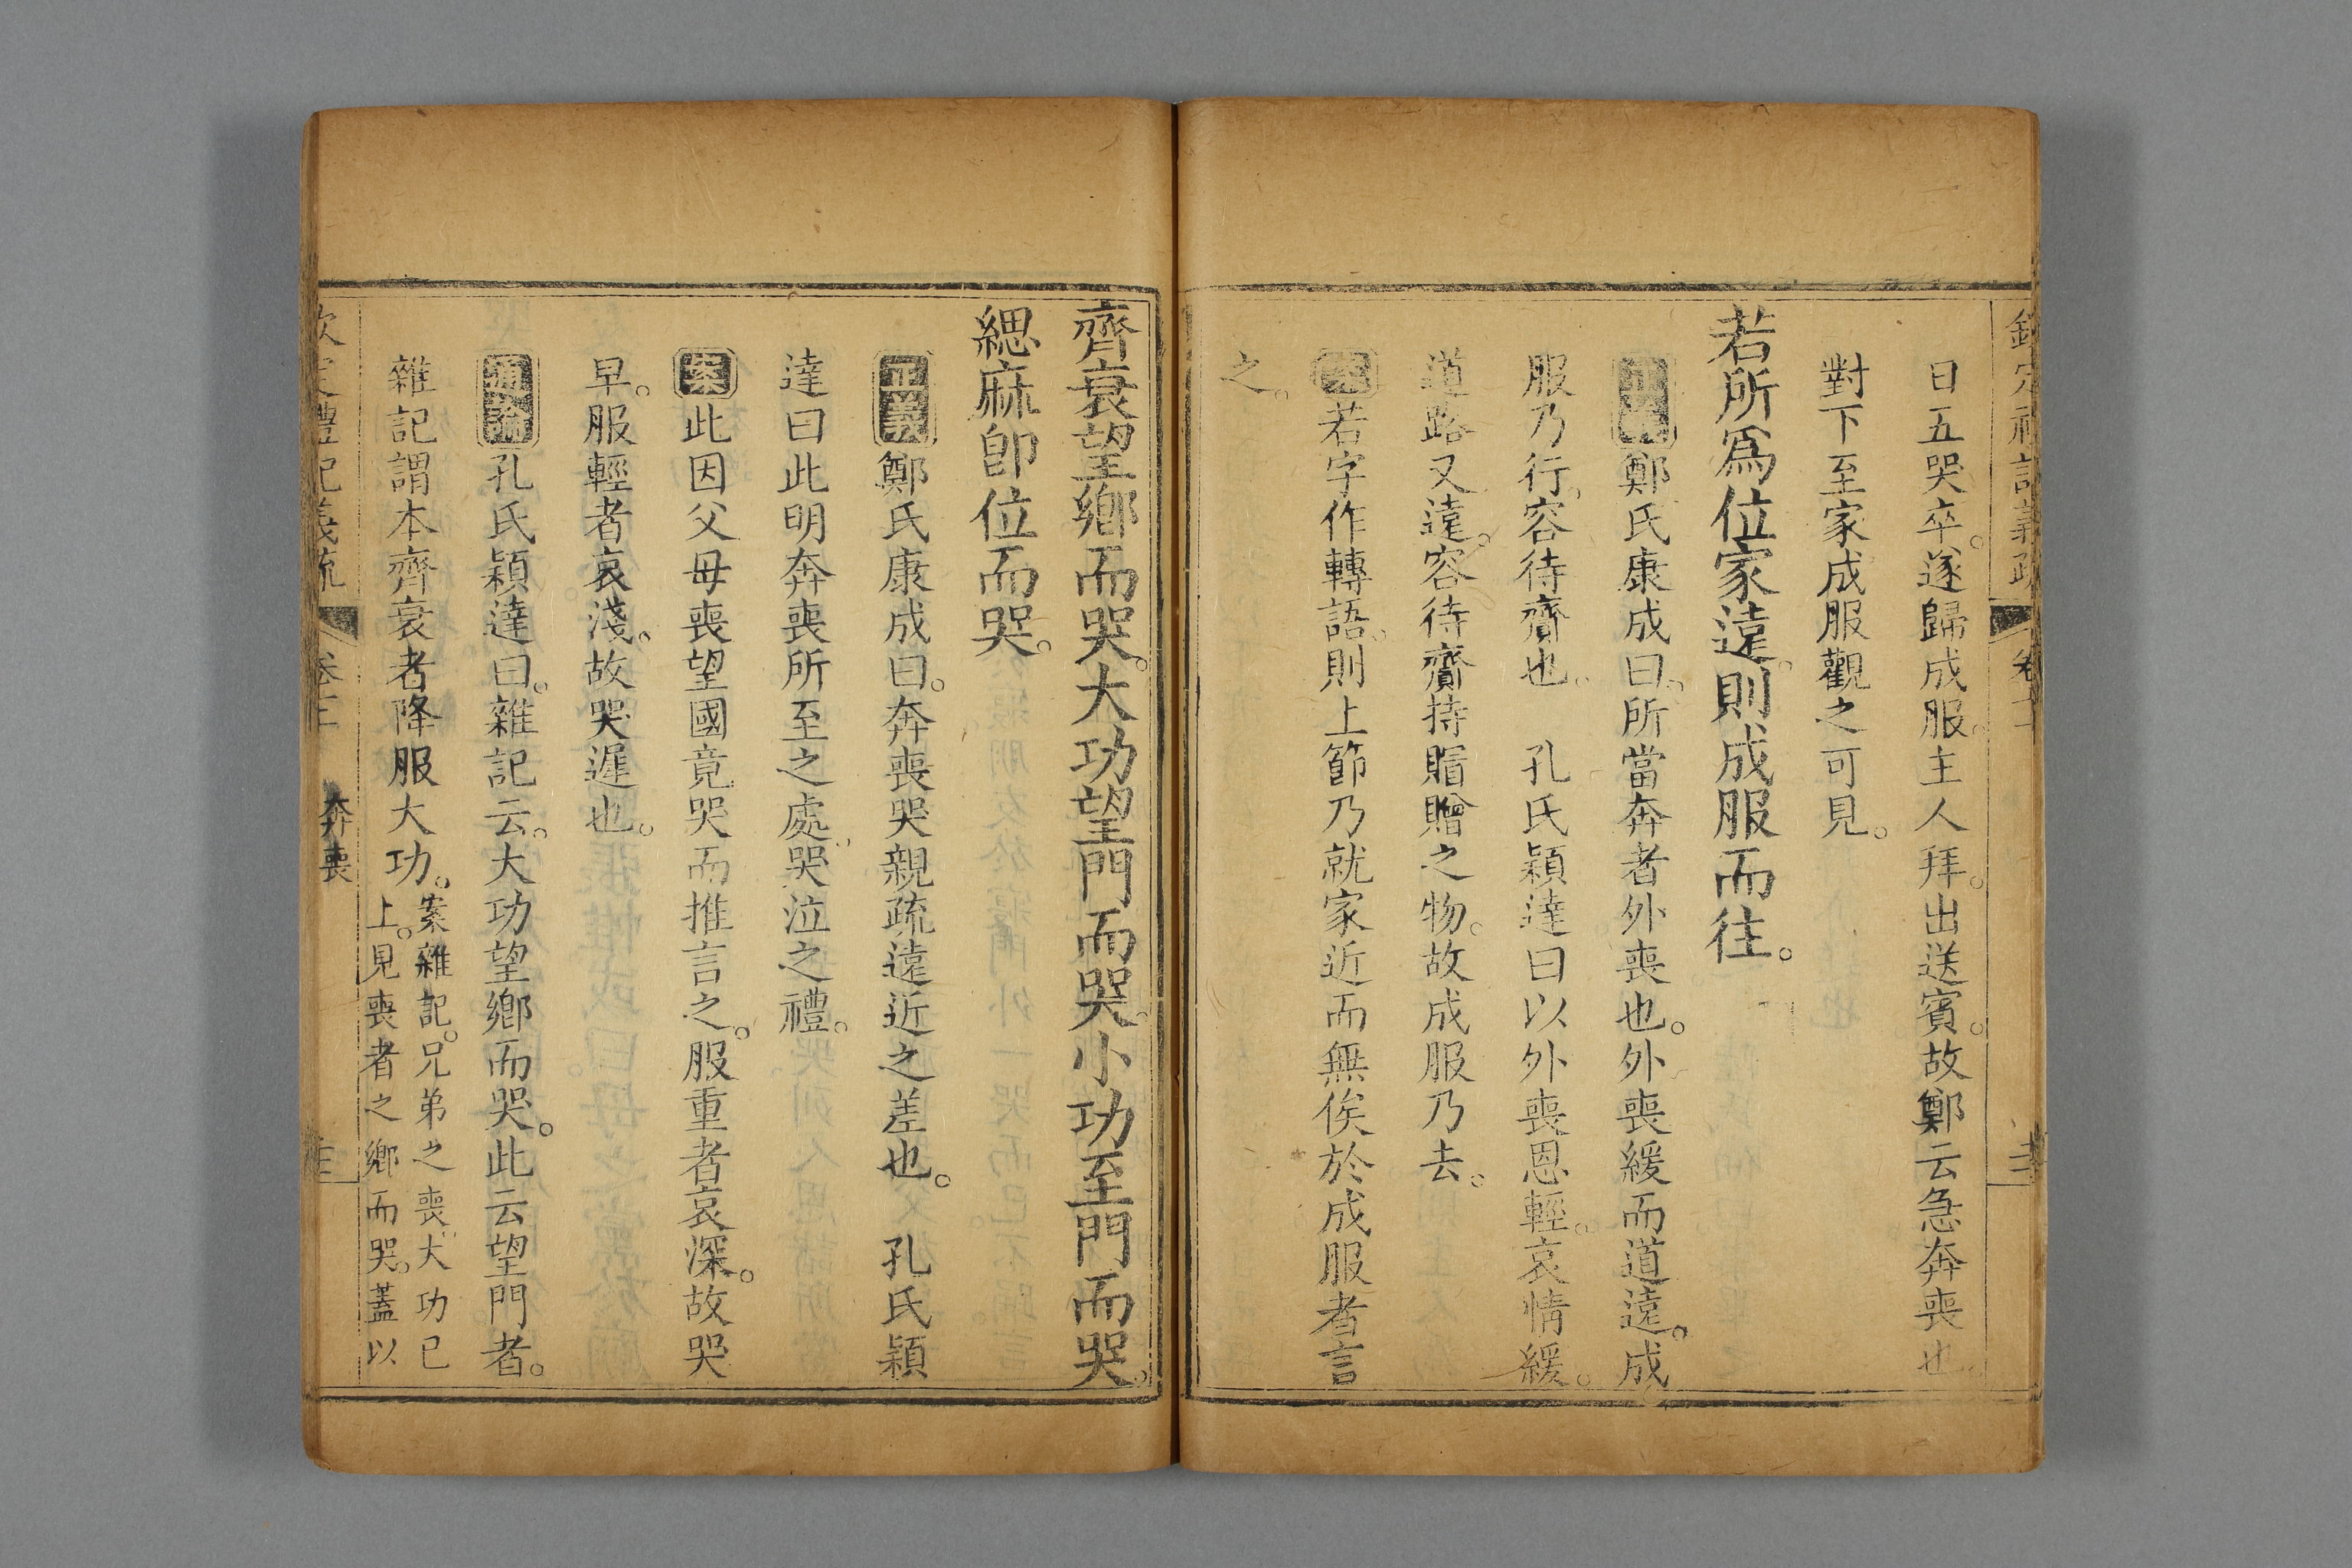 日五哭卒。遂歸成服。主人拜。出送賓。故鄭云急奔喪也
對下至家成服觀之可見。
若所爲位家遠。則成服而往。
正義鄭氏康成曰。所當奔者外喪也。外喪緩而道遠。成
服乃行。容待齎也。　孔氏穎達曰以外喪恩輕。哀情緩。
道路又遠。容待齎持賵贈之物。故成服乃去。
案若字作轉語。則上節乃就家近而無俟於成服者言
之。
齊衰望鄉而哭。大功望門而哭。小功至門而哭。
緦麻卽位而哭。
正義鄭氏康成曰。奔喪哭親疏遠近之差也。　孔氏穎
達曰此明奔喪所至之處。哭泣之禮。
案此因父母喪望國竟哭而推言之。服重者哀深。故哭
早。服輕者哀淺。故哭遲也。
通論孔氏穎達曰。雜記云。大功望鄉而哭。此云望門者。
雜記謂本齊衰者降服大功。案雜記。兄弟之喪。大功已
上。見喪者之鄉而哭。蓋以
欽定禮記義疏　卷　奔喪